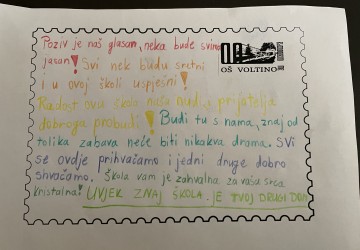 Poziv je naš glasan, neka bude svima
jasan! Svi nek budu sretni
i u ovoj školi uspješni!
Radost ova škola naša nudi, prijatelja
dobroga probudi! Budi tu s nama, znaj od
tolika zabava neće biti nikakva drama. Svi
se ovdje prihvaćamo i jedni druge dobro
shvaćamo. Škola vam je zahvalna za vaša srca
kristalna! UVJEK ZNAJ ŠKOLA JE TVOJ DRUGI DOM
OŠ VOLTINO